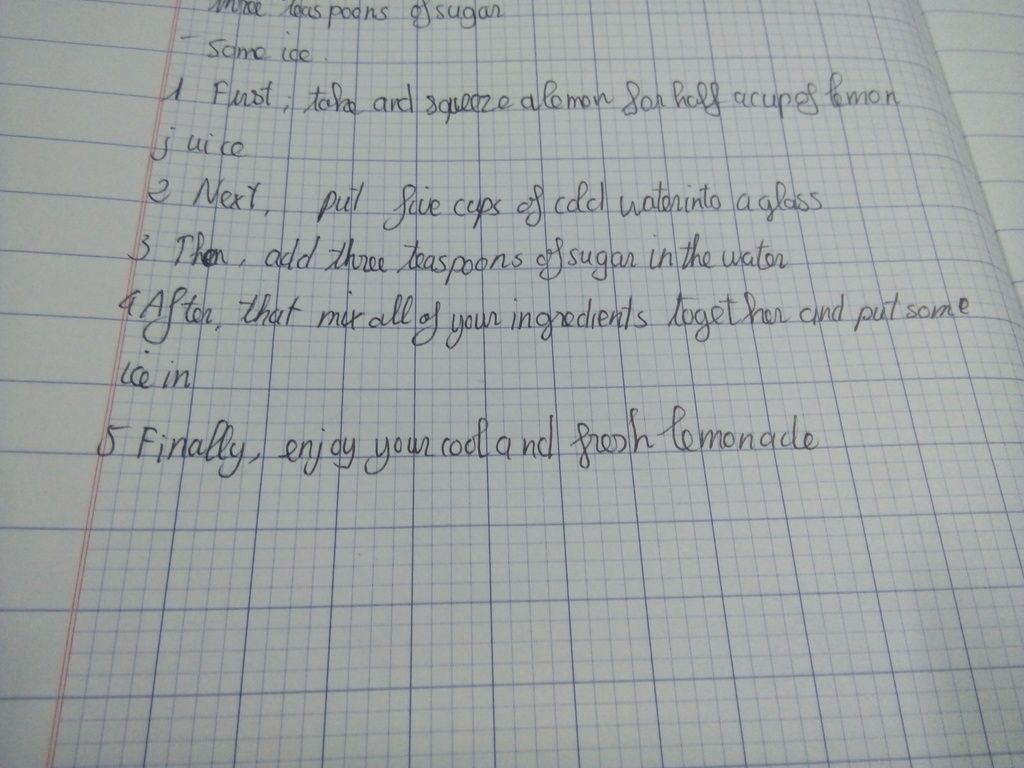 three teaspoons of sugar
- Some ice.
1 First, take and squeeze a lemon for half a cup of lemon
juice
2 Next, put five cups of cold water into a glass
3 Then, add three teaspoons of sugar in the water
4 After, that mix all of your ingredients together and put some
ice in
5 Finally, enjoy your cool and fresh lemonade